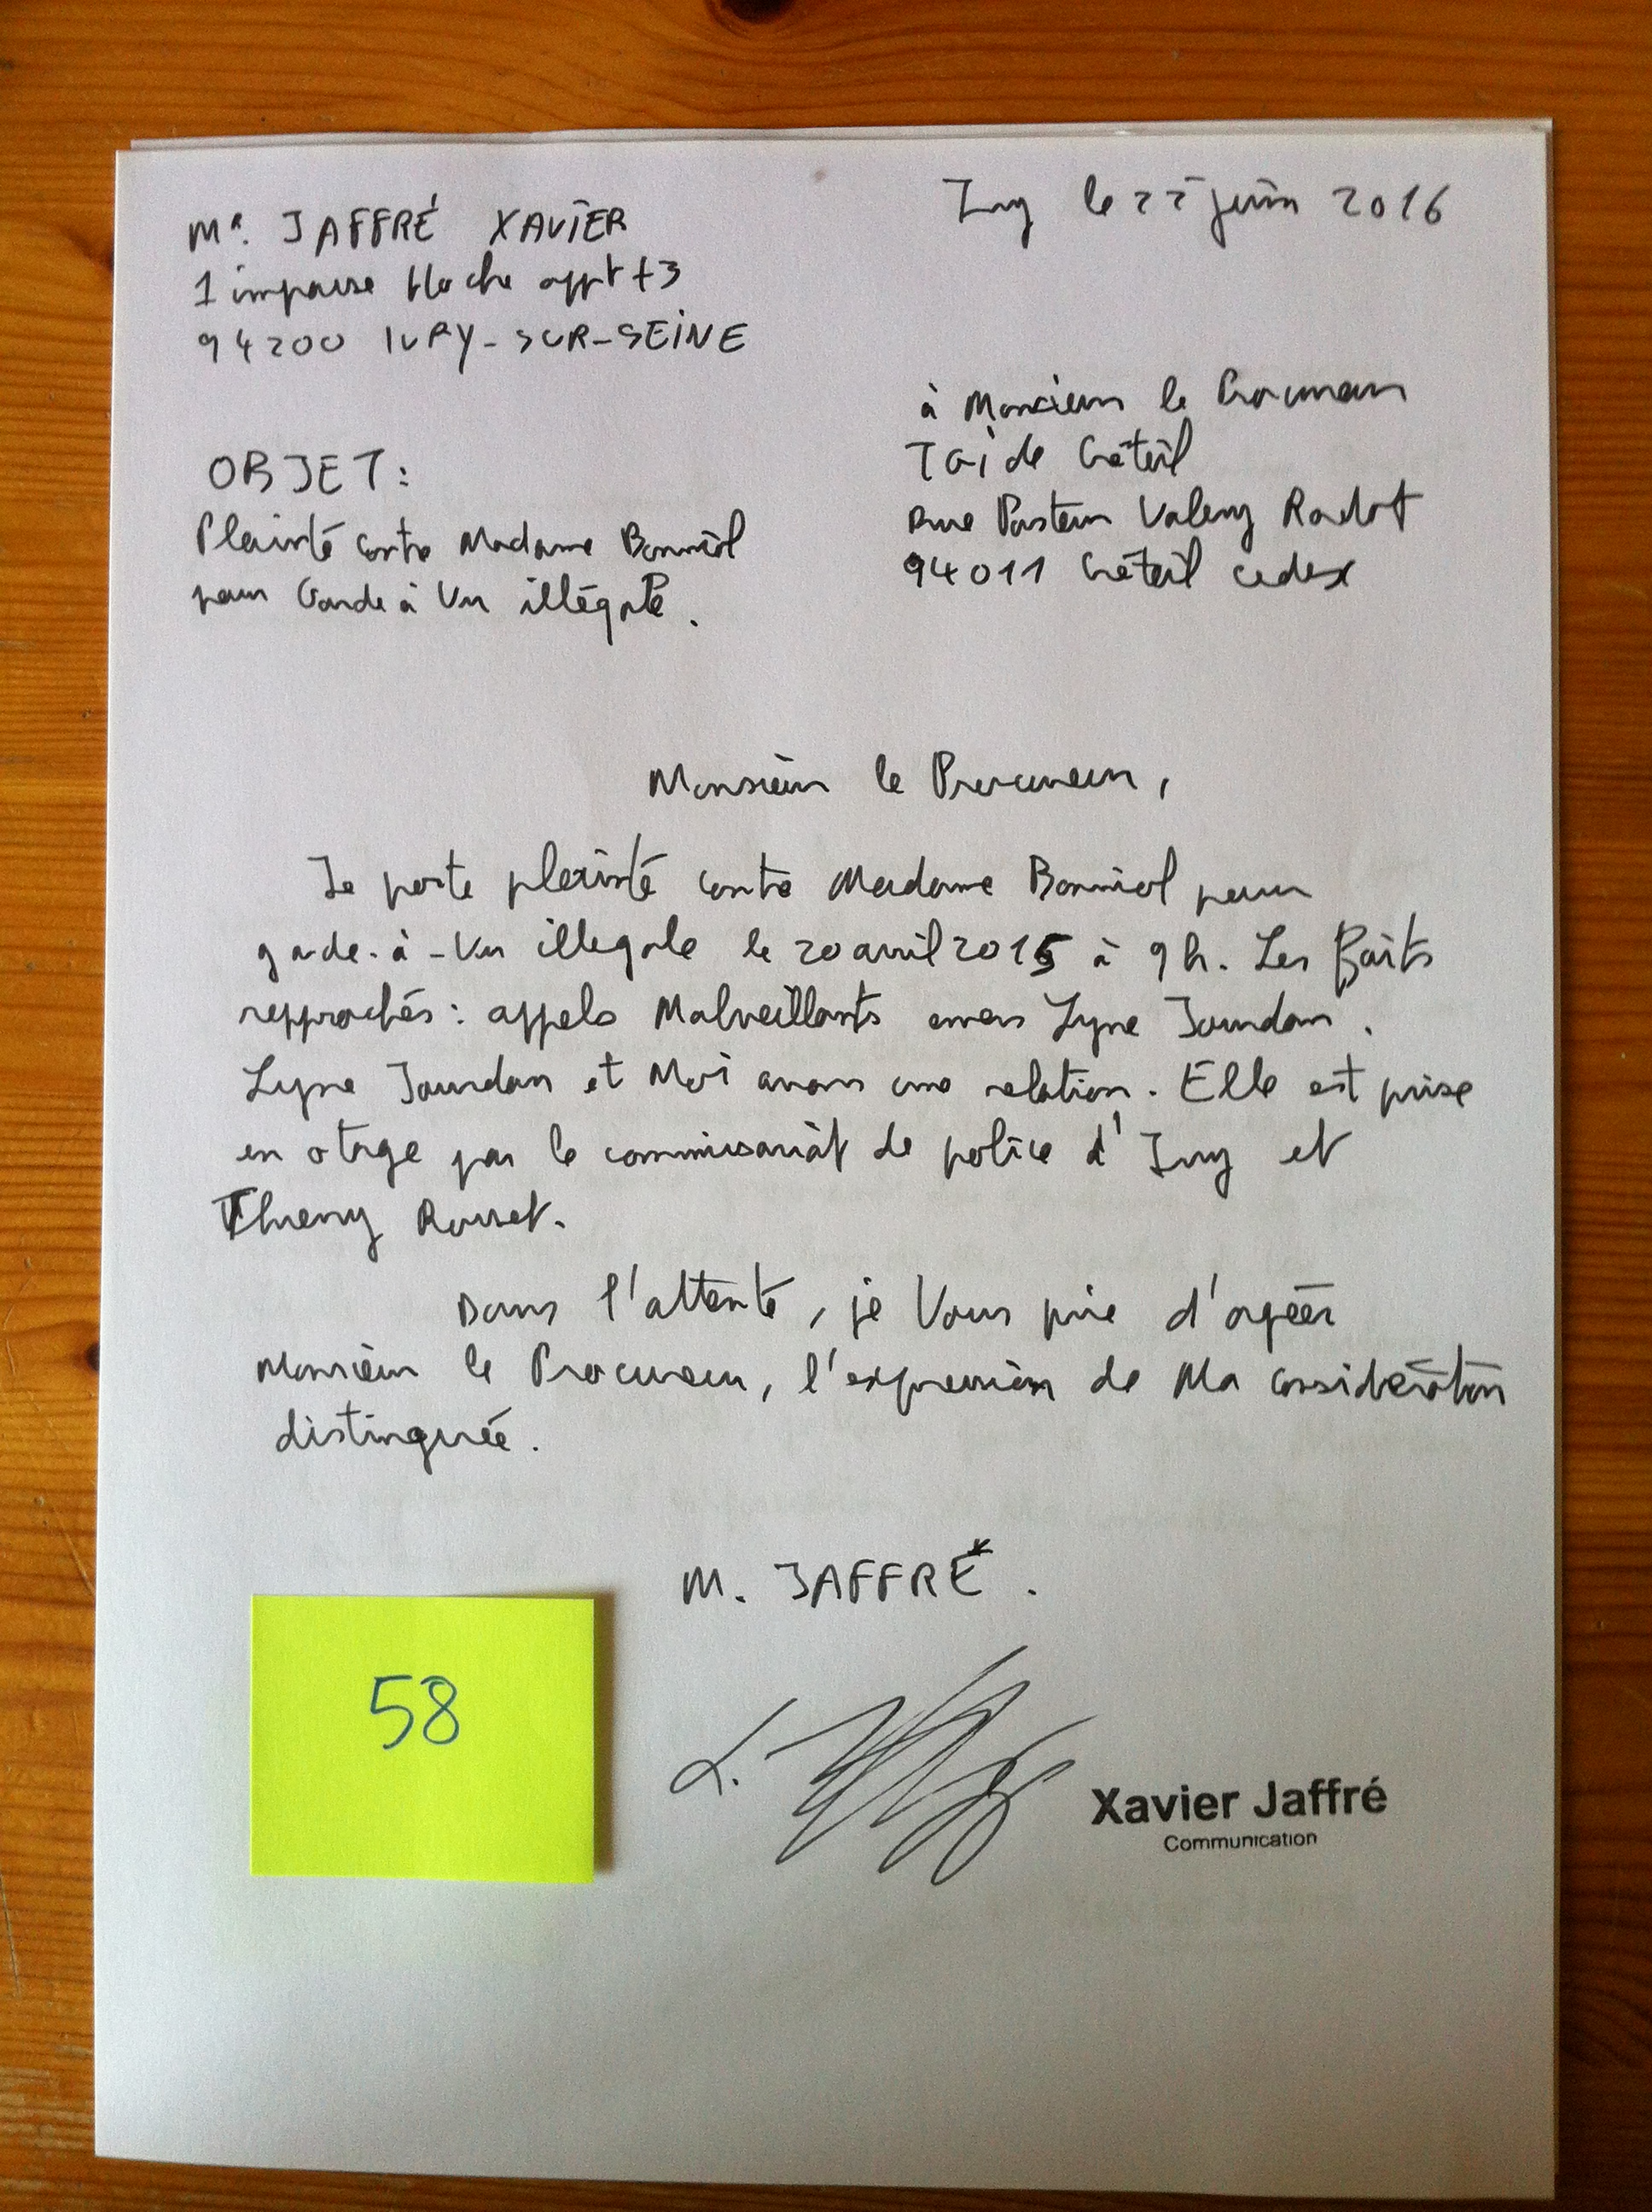 Mr. JAFFRÉ XAVIER
Ivry le 22 juin 2016
1 impasse Hoche appt +3
94200 IVRY-SUR-SEINE
à Monsieur le Procureur
TGI de Créteil
Rue Pasteur Valery Radot
94011 Créteil cedex
OBJET:
Plainte contre Madame Bonniol
pour Garde à Vue illégale.
Monsieur le Procureur,
Je porte plainte contre Madame Bonniol pour
garde-à-Vue illegale le 20 avril 2015 à 9h. Les Faits
reprochés: appels Malveillants envers Lyne Jourdan.
Lyne Jourdan et Moi avons une relation. Elle est prise
en otage par le commissariat de police d'Ivry et
Thierry Rousset.
Dans l'attente, je Vous prie d'agéer
Monsieur le Procureur, l'expression de Ma considération
distinguée.
M. JAFFRÉ.
58
Xavier Jaffré
Communication